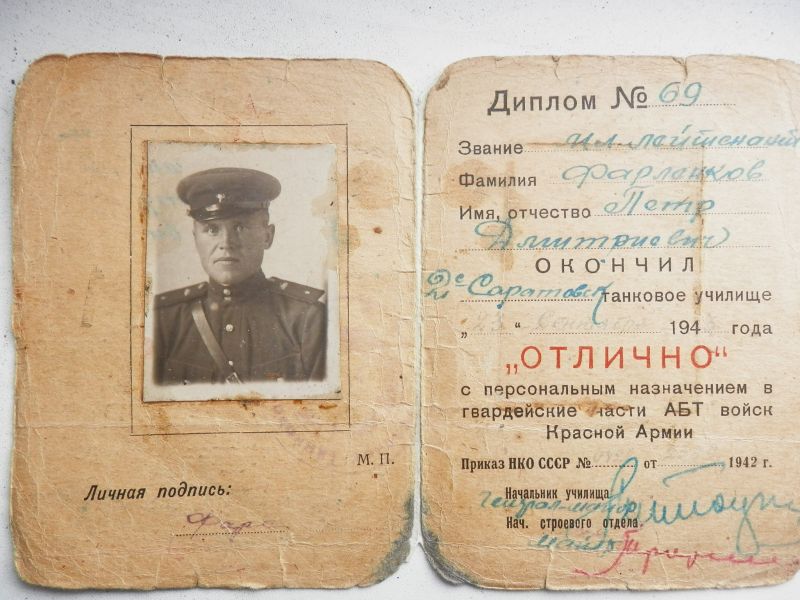 М. П.
Личная подпись:
Фарл
Диплом № 69
Звание мл лейтенант
Фамилия Фарленков
Имя, отчество Петр
Дмитриевич
ОКОНЧИЛ
2е Саратовск танковое училище
„ 23 “ 194 года
„ОТЛИЧНО“
с персональным назначением в
гвардейские части АБТ войск
Красной Армии
Приказ НКО СССР № от 1942 г.
Начальник училища
Генерал-майор
Нач. строевого отдела
майор